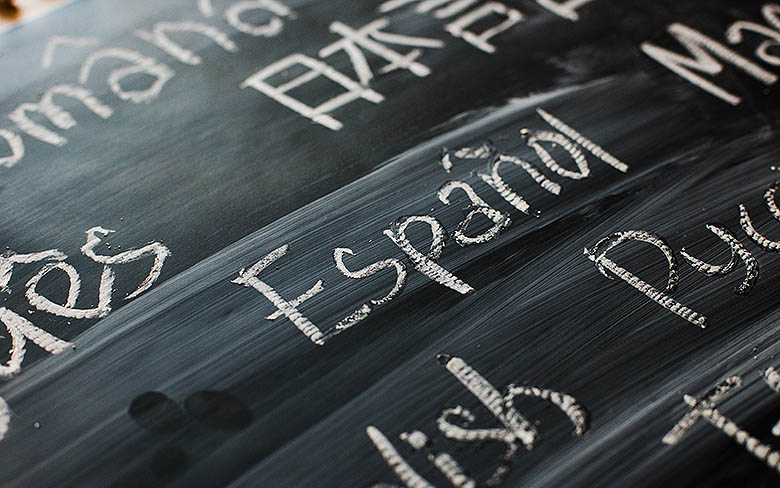 omână 日本語 Ma
uês Español Рус
lish